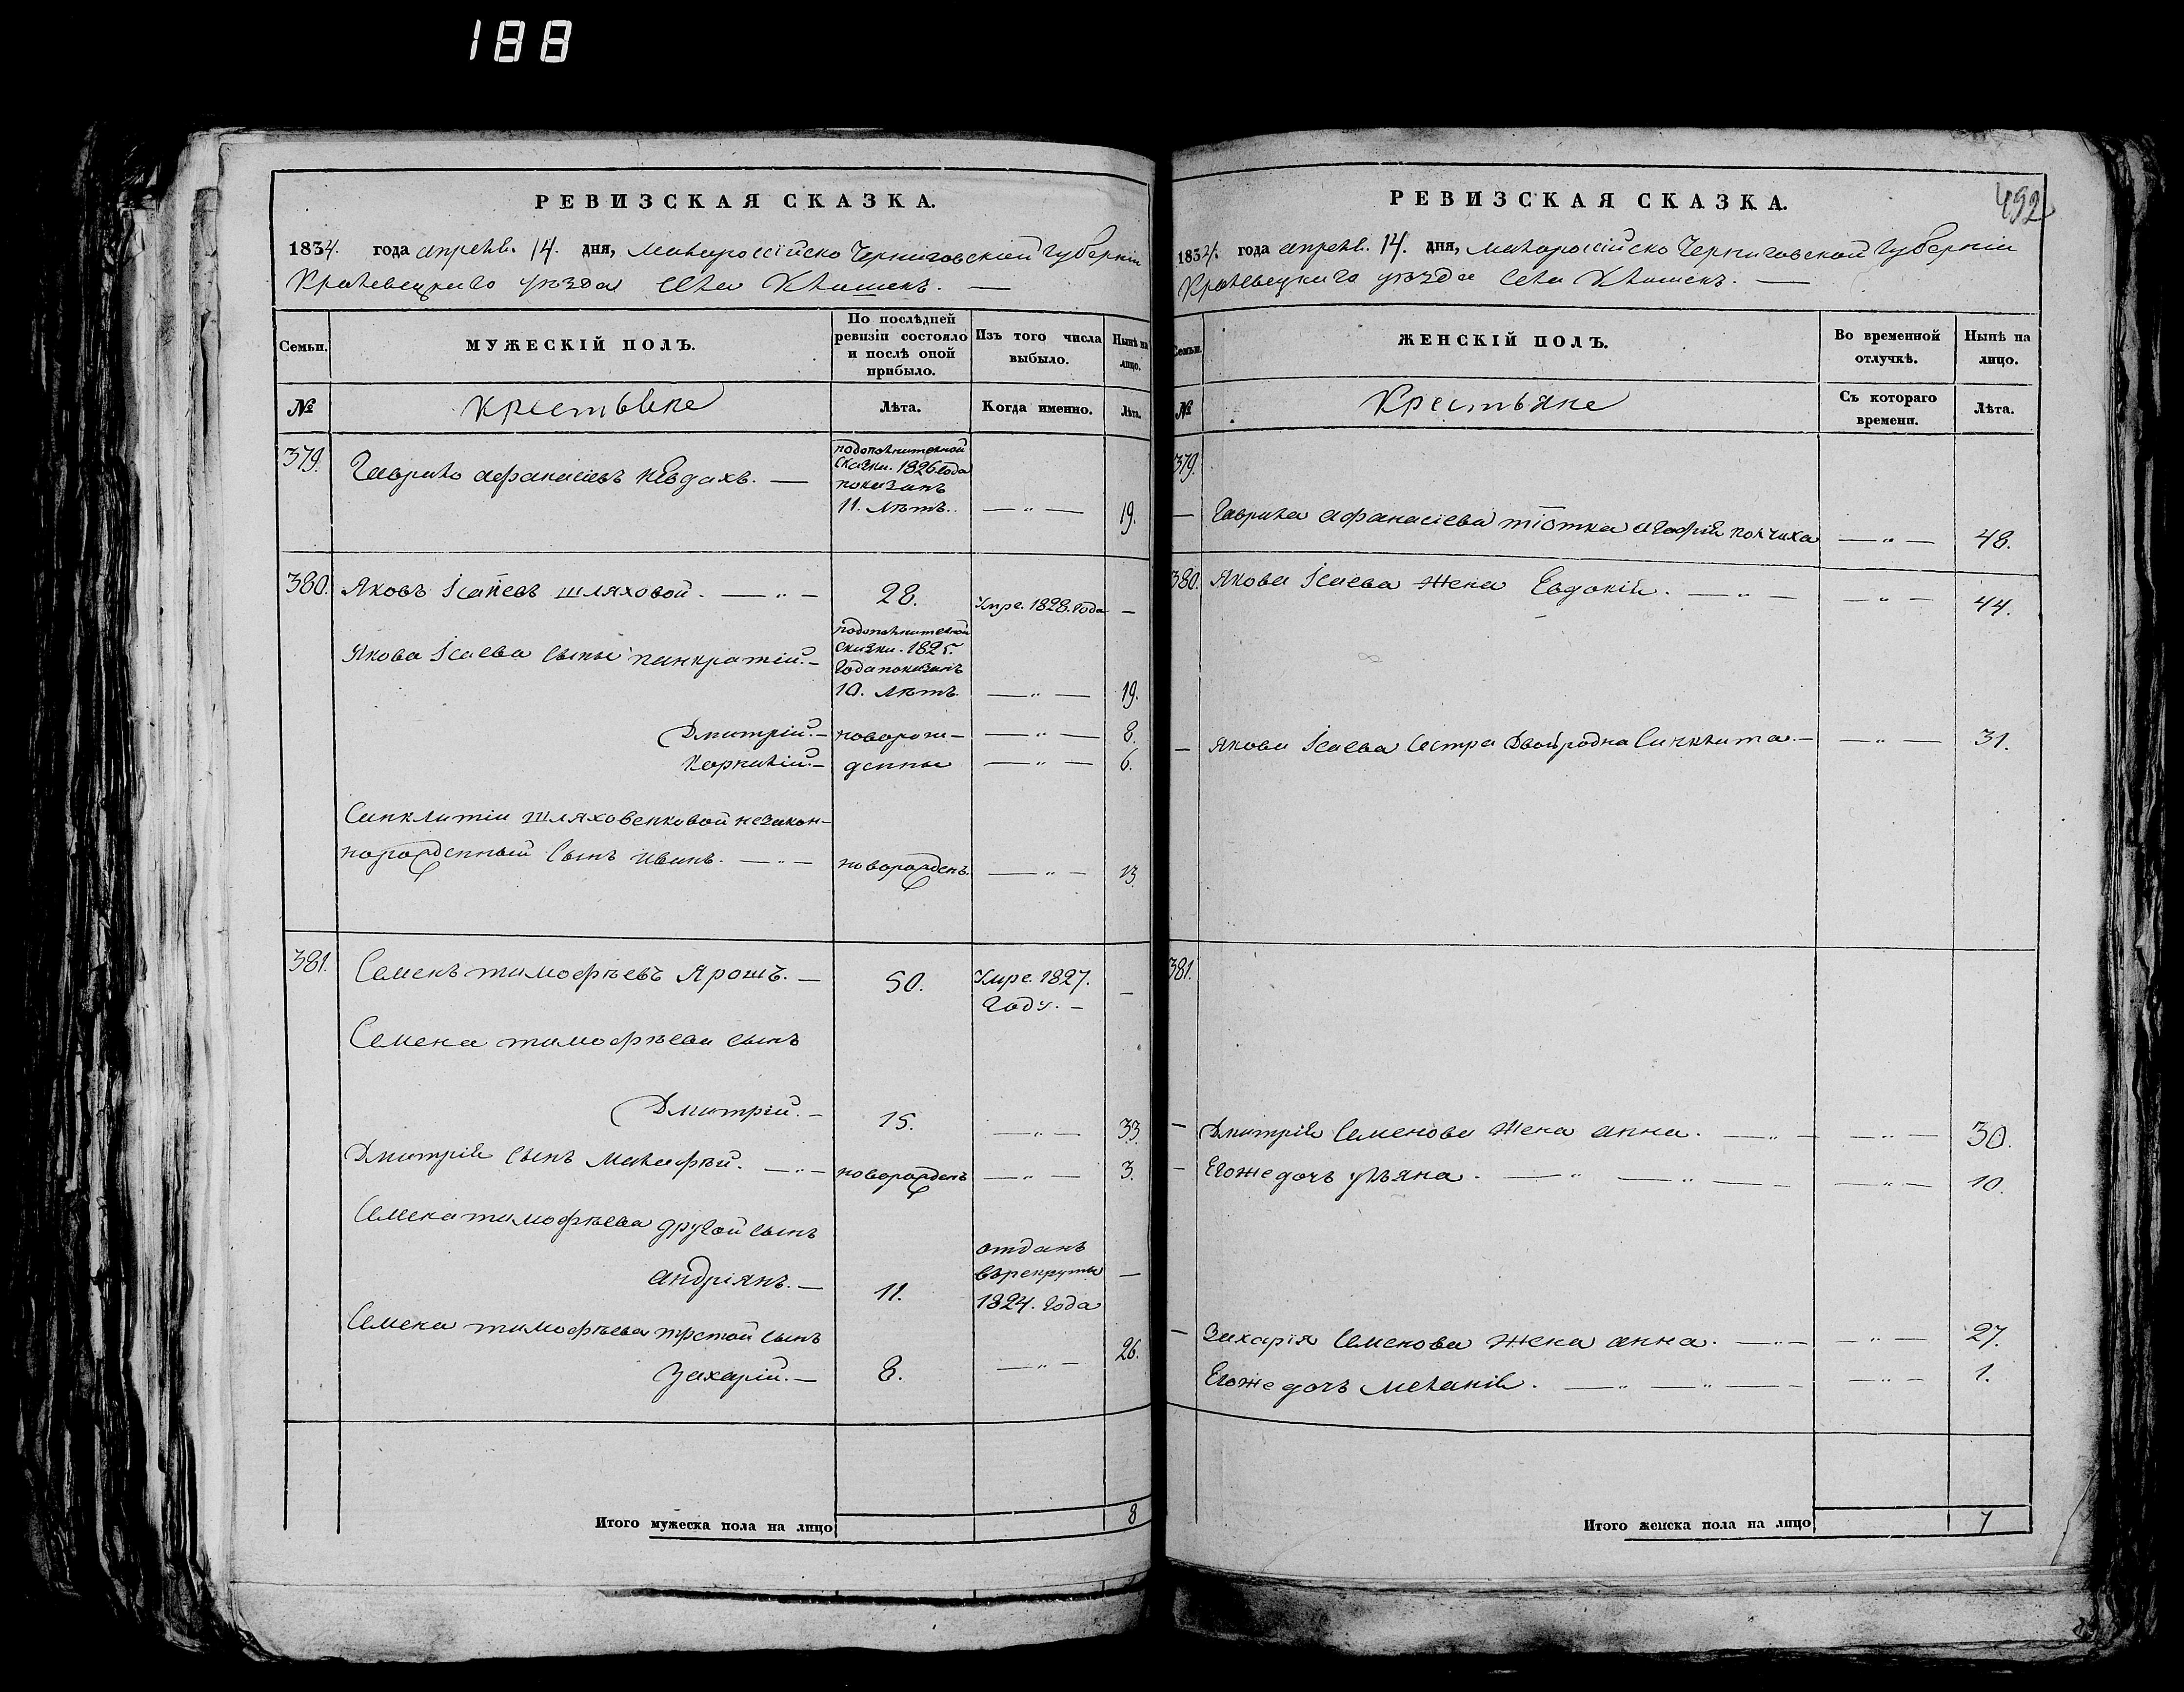 188
РЕВИЗСКАЯ СКАЗКА.
1834. года апреля. 14. дня, Малороссійско Черниговской Губерніи
Кролевецкаго уѣзда села Клишекъ. —
Семьи.
МУЖЕСКІЙ ПОЛЪ.
По послѣдней ревизіи состояло и послѣ оной прибыло.
Изъ того числа выбыло.
Нынѣ на лицо.
№
Крестьяне
Лѣта.
Когда именно.
Лѣта.
379.
Гаврило Афанасіевъ
подополнителной
сказки. 1826 года
показанъ
11. лѣтъ.
— „ —
19.
380.
Яковъ Ісаевъ шляховой. — „ —
28.
Умре. 1828. года
—
Якова Ісаева сыны панкратій. —
подополнителной
сказки. 1825.
года показанъ
10. лѣтъ.
— „ —
19.
Дмитрій. —
новорож—
— „ —
8.
Корнилій. —
денны
— „ —
6.
Синклитіи шляховенковой незакон—
норожденный сынъ иванъ. — „ —
новорожденъ.
— „ —
13.
381.
Семенъ тимофѣевъ Ярошъ. —
50.
Умре. 1827.
году. —
—
Семена тимофѣева сынъ
Дмитрій. —
15.
— „ —
33.
Дмитрія сынъ Малафѣй. — „ —
новорожденъ
— „ —
3.
Семена тимофѣева другой сынъ
андріянъ. —
11.
отданъ
врекруты
1824. года
—
Семена тимофѣева третой сынъ
Захарій. —
8.
— „ —
26.
Итого мужеска пола на лицо
8
РЕВИЗСКАЯ СКАЗКА.
492
1834. года апреля. 14. дня, Малороссійско Черниговской Губерніи
Кролевецкаго уѣзда села Клишекъ. —
Семьи.
ЖЕНСКІЙ ПОЛЪ.
Во временной отлучкѣ.
Нынѣ на лицо.
№
Крестьяне
Съ котораго времени.
Лѣта.
379.
— Гаврила Афанасіева тіотка агафія
— „ —
48.
380.
Якова Ісаева жена Евдокія. — „ —
— „ —
44.
— Якова Ісаева сестра двоюродна Синклита. —
— „ —
31.
381.
— Дмитрія Семенова жена анна. — „ —
— „ —
30.
— Егоже дочъ ульяна. — „ — „ —
— „ —
10.
— Захарія Семенова жена анна. — „ —
— „ —
27.
Егоже дочъ меланія. — „ — „ —
— „ —
1.
Итого женска пола на лицо
7